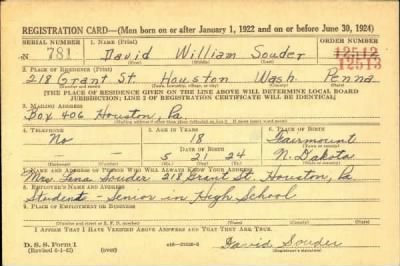 REGISTRATION CARD—(Men born on or after January 1, 1922 and on or before June 30, 1924)
SERIAL NUMBER 1. NAME (Print) ORDER NUMBER
N 781 David William Souder 12512
(First) (Middle) (Last) 12513
2. PLACE OF RESIDENCE (Print)
218 Grant St. Houston Wash. Penna
(Number and street) (Town, township, village, or city) (County) (State)
[THE PLACE OF RESIDENCE GIVEN ON THE LINE ABOVE WILL DETERMINE LOCAL BOARD
JURISDICTION; LINE 2 OF REGISTRATION CERTIFICATE WILL BE IDENTICAL]
3. MAILING ADDRESS
Box 406 Houston, Pa.
[Mailing address if other than place indicated on line 2. If same insert word same]
4. TELEPHONE 5. AGE IN YEARS 6. PLACE OF BIRTH
No 18 Fairmount
DATE OF BIRTH (Town or county)
— — 5 21 24 N. Dakota
(Exchange) (Number) (Mo.) (Day) (Yr.) (State or country)
7. NAME AND ADDRESS OF PERSON WHO WILL ALWAYS KNOW YOUR ADDRESS
Mrs. Souder 218 Grant St. Houston, Pa
8. EMPLOYER'S NAME AND ADDRESS
Student - Senior in High School
9. PLACE OF EMPLOYMENT OR BUSINESS
(Number and street or R. F. D. number) (Town) (County) (State)
I AFFIRM THAT I HAVE VERIFIED ABOVE ANSWERS AND THAT THEY ARE TRUE.
D. S. S. Form 1
(Revised 6-1-42) (over) David Souder